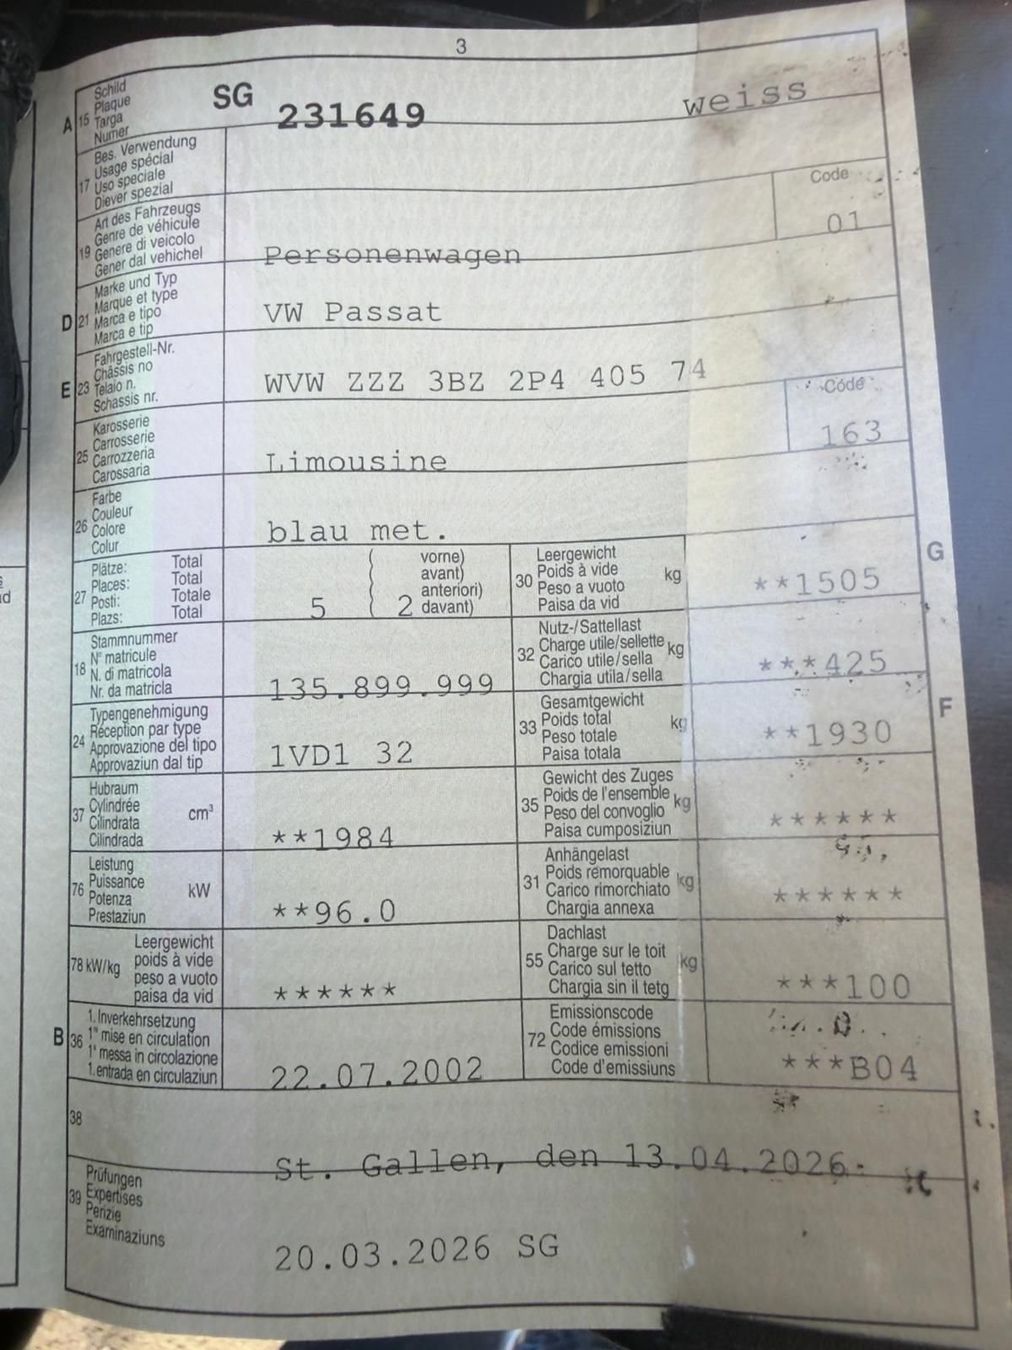 3
A 15 Schild
Plaque
Targa
Numer
SG 231649 weiss
17 Bes. Verwendung
Usage spécial
Uso speciale
Diever spezial
19 Art des Fahrzeugs
Genre de véhicule
Genere di veicolo
Gener dal vehichel
Personenwagen
Code
01
D 21 Marke und Typ
Marque et type
Marca e tipo
Marca e tip
VW Passat
E 23 Fahrgestell-Nr.
Châssis no
Telaio n.
Schassis nr.
WVW ZZZ 3BZ 2P4 405 74
25 Karosserie
Carrosserie
Carrozzeria
Carossaria
Limousine
Code
163
26 Farbe
Couleur
Colore
Colur
blau met.
27 Plätze: Total
Places: Total
Posti: Totale
Plazs: Total
5 ( 2
vorne)
avant)
anteriori)
davant)
G
30 Leergewicht
Poids à vide
Peso a vuoto
Paisa da vid
kg
**1505
18 Stammnummer
N° matricule
N. di matricola
Nr. da matricla
135.899.999
32 Nutz-/Sattellast
Charge utile/sellette
Carico utile/sella
Chargia utila/sella
kg
***425
24 Typengenehmigung
Réception par type
Approvazione del tipo
Approvaziun dal tip
1VD1 32
F
33 Gesamtgewicht
Poids total
Peso totale
Paisa totala
kg
**1930
37 Hubraum
Cylindrée
Cilindrata
Cilindrada
cm³
**1984
35 Gewicht des Zuges
Poids de l'ensemble
Peso del convoglio
Paisa cumposiziun
kg
******
76 Leistung
Puissance
Potenza
Prestaziun
kW
**96.0
31 Anhängelast
Poids remorquable
Carico rimorchiato
Chargia annexa
kg
******
78 kW/kg Leergewicht
poids à vide
peso a vuoto
paisa da vid
******
55 Dachlast
Charge sur le toit
Carico sul tetto
Chargia sin il tetg
kg
***100
B 36 1. Inverkehrsetzung
1re mise en circulation
1a messa in circolazione
1. entrada en circulaziun
22.07.2002
72 Emissionscode
Code émissions
Codice emissioni
Code d'emissiuns
***B04
38
St. Gallen, den 13.04.2026
39 Prüfungen
Expertises
Perizie
Examinaziuns
20.03.2026 SG